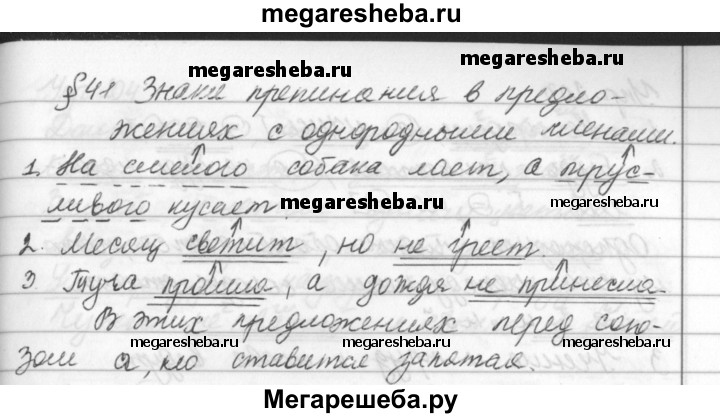 megaresheba.ru
megaresheba.ru
megaresheba.ru
§41 Знаки препинания в предло-
жениях с однородными членами.
1. На смелого собака лает, а трус-
ливого кусает.
megaresheba.ru
2. Месяц светит, но не греет.
3. Туча прошла, а дождя не принесла.
В этих предложениях перед сою-
зом а, но ставится запятая.
megaresheba.ru
megaresheba.ru
Мегарешеба.ру